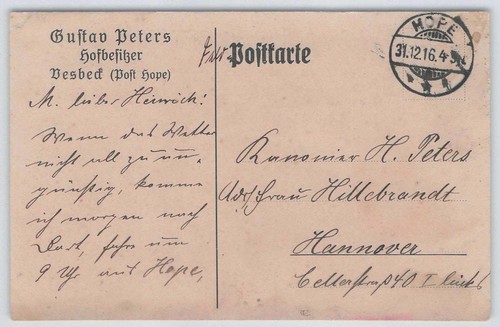 Gustav Peters
Hofbesitzer
Vesbeck (Post Hope)
M. lieber Heinrich!
Wenn das Wetter
nicht all zu un-
günstig, komme
ich morgen nach
Dort, fahre um
9 Uhr mit Hope,
Feld-Postkarte
HOPE
31.12.16.4-5N.
Kanonier H. Peters
Adr. Frau Hillebrandt
Hannover
Cellerstraß 40 I links